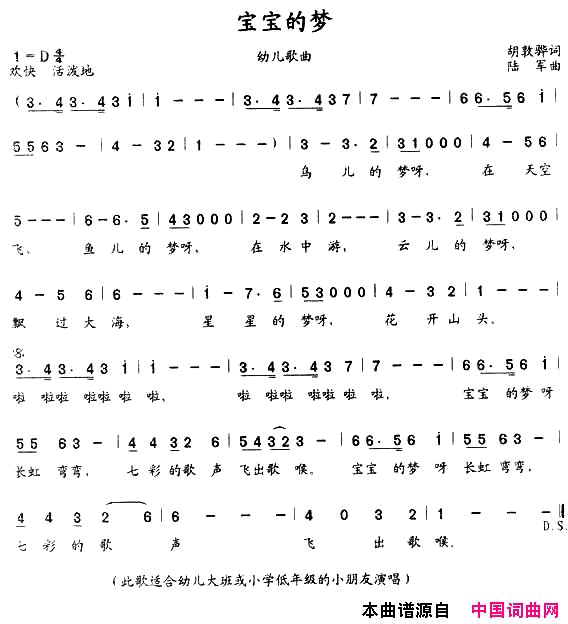 宝宝的梦
1 = D 4/4
幼儿歌曲
胡敦骅词
欢快 活泼地
陆 军曲
( 3· 4 3· 4 3 i | i - - - | 3· 4 3· 4 3 7 | 7 - - - | 6 6· 5 6 i |
5 5 6 3 - | 4 - 3 2 | 1 - - - ) | 3 - 3· 2 | 3 1 0 0 0 | 4 - 5 6 |
鸟 儿 的 梦 呀, 在 天 空
5 - - - | 6 - 6· 5 | 4 3 0 0 0 | 2 - 2 3 | 2 - - - | 3 - 3· 2 | 3 1 0 0 0 |
飞, 鱼 儿 的 梦 呀, 在 水 中 游, 云 儿 的 梦 呀,
4 - 5 6 | 6 - - - | i - 7· 6 | 5 3 0 0 0 | 4 - 3 2 | 1 - - - |
飘 过 大 海, 星 星 的 梦 呀, 花 开 山 头。
3· 4 3· 4 3 i | i - - - | 3· 4 3· 4 3 7 | 7 - - - | 6 6· 5 6 i |
啦 啦啦 啦啦 啦 啦, 啦 啦啦 啦啦 啦 啦, 宝宝 的 梦 呀
5 5 6 3 - | 4 4 3 2 6 | 5 4 3 2 3 - | 6 6· 5 6 i | 5 5 6 3 - |
长虹 弯 弯, 七 彩 的 歌 声 飞 出 歌 喉。 宝宝 的 梦 呀 长虹 弯 弯,
4 4 3 2 6 | 6 - - - | 4 0 3 2 | 1 - - - ‖
D.S.
七 彩 的 歌 声 飞 出 歌 喉。
(此歌适合幼儿大班或小学低年级的小朋友演唱)
本曲谱源自 中国词曲网